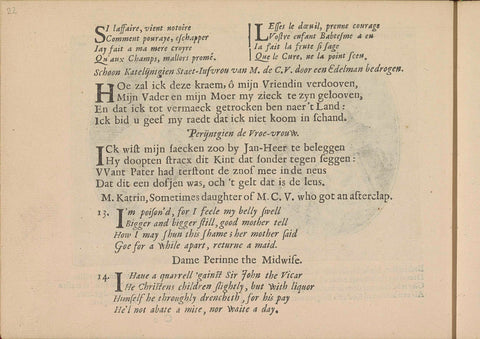 22
SI laffaire, vient notoire
Comment pouraye, eschapper
Iay fait a ma mere croyre
Qu'aux Champs, mallors promé.
LEsses le dœuil, prenne courage
Vostre enfant Babtesme a eu
Ia fait la frute si sage
Que le Cure, ne la point sceu.
Schoon Katelijntgien Staet-Iufvrou van M. de C.V. door een Edelman bedrogen.
HOe zal ick deze kraem, ô mijn Vriendin verdooven,
Mijn Vader en mijn Moer my zieck te zyn gelooven,
En dat ick tot vermaeck getrocken ben naer't Land:
Ick bid u geef my raedt dat ick niet koom in schand.
Perijntgien de Vroe-vrouw.
ICk wist mijn faecken zoo by Jan-Heer te beleggen
Hy doopten stracx dit Kint dat sonder tegen seggen:
VVant Pater had terstont de znof mee in de neus
Dat dit een dosjen was, och 't gelt dat is de leus.
M. Katrin, Sometimes daughter of M. C.V. who got an afterclap.
13. I'm poison'd, for I feele my belly swell
Bigger and bigger still, good mother tell
How I may shun this shame: her mother said
Goe for a while apart, returne a maid.
Dame Perinne the Midwife.
14. I Have a quarrell 'gainst Sir John the Vicar
He Christens children slightly, but with liquor
Himself he throughly drencheth, for his pay
He'l not abate a mite, nor waite a day.